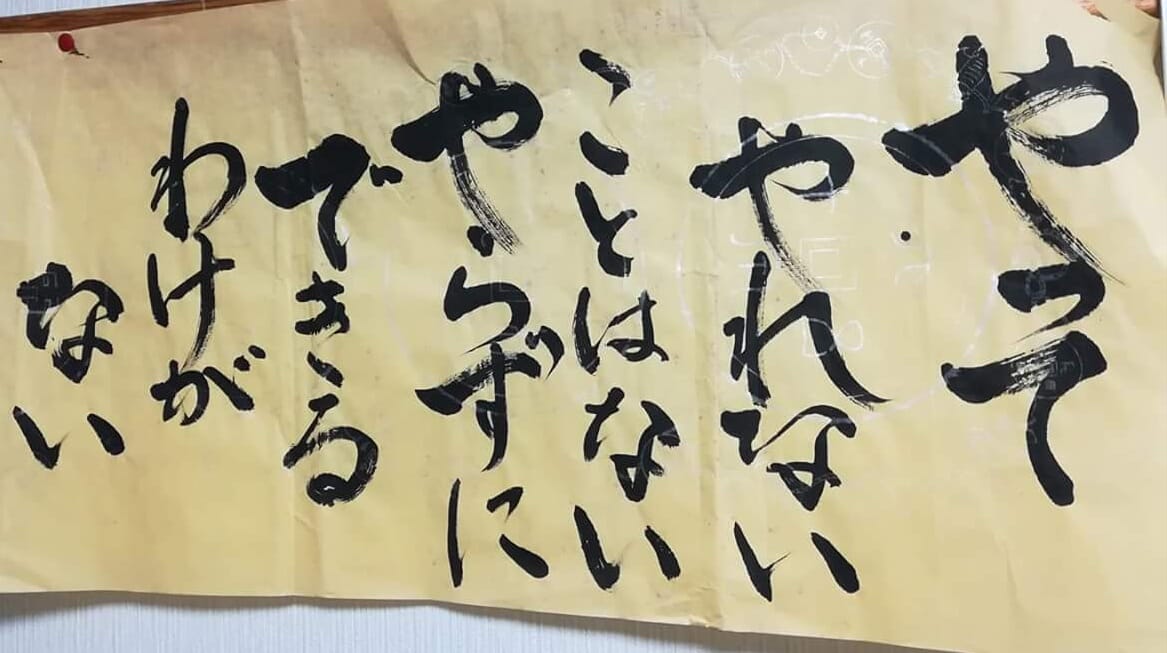 やって
やれない
ことはない
やらずに
できる
わけが
ない